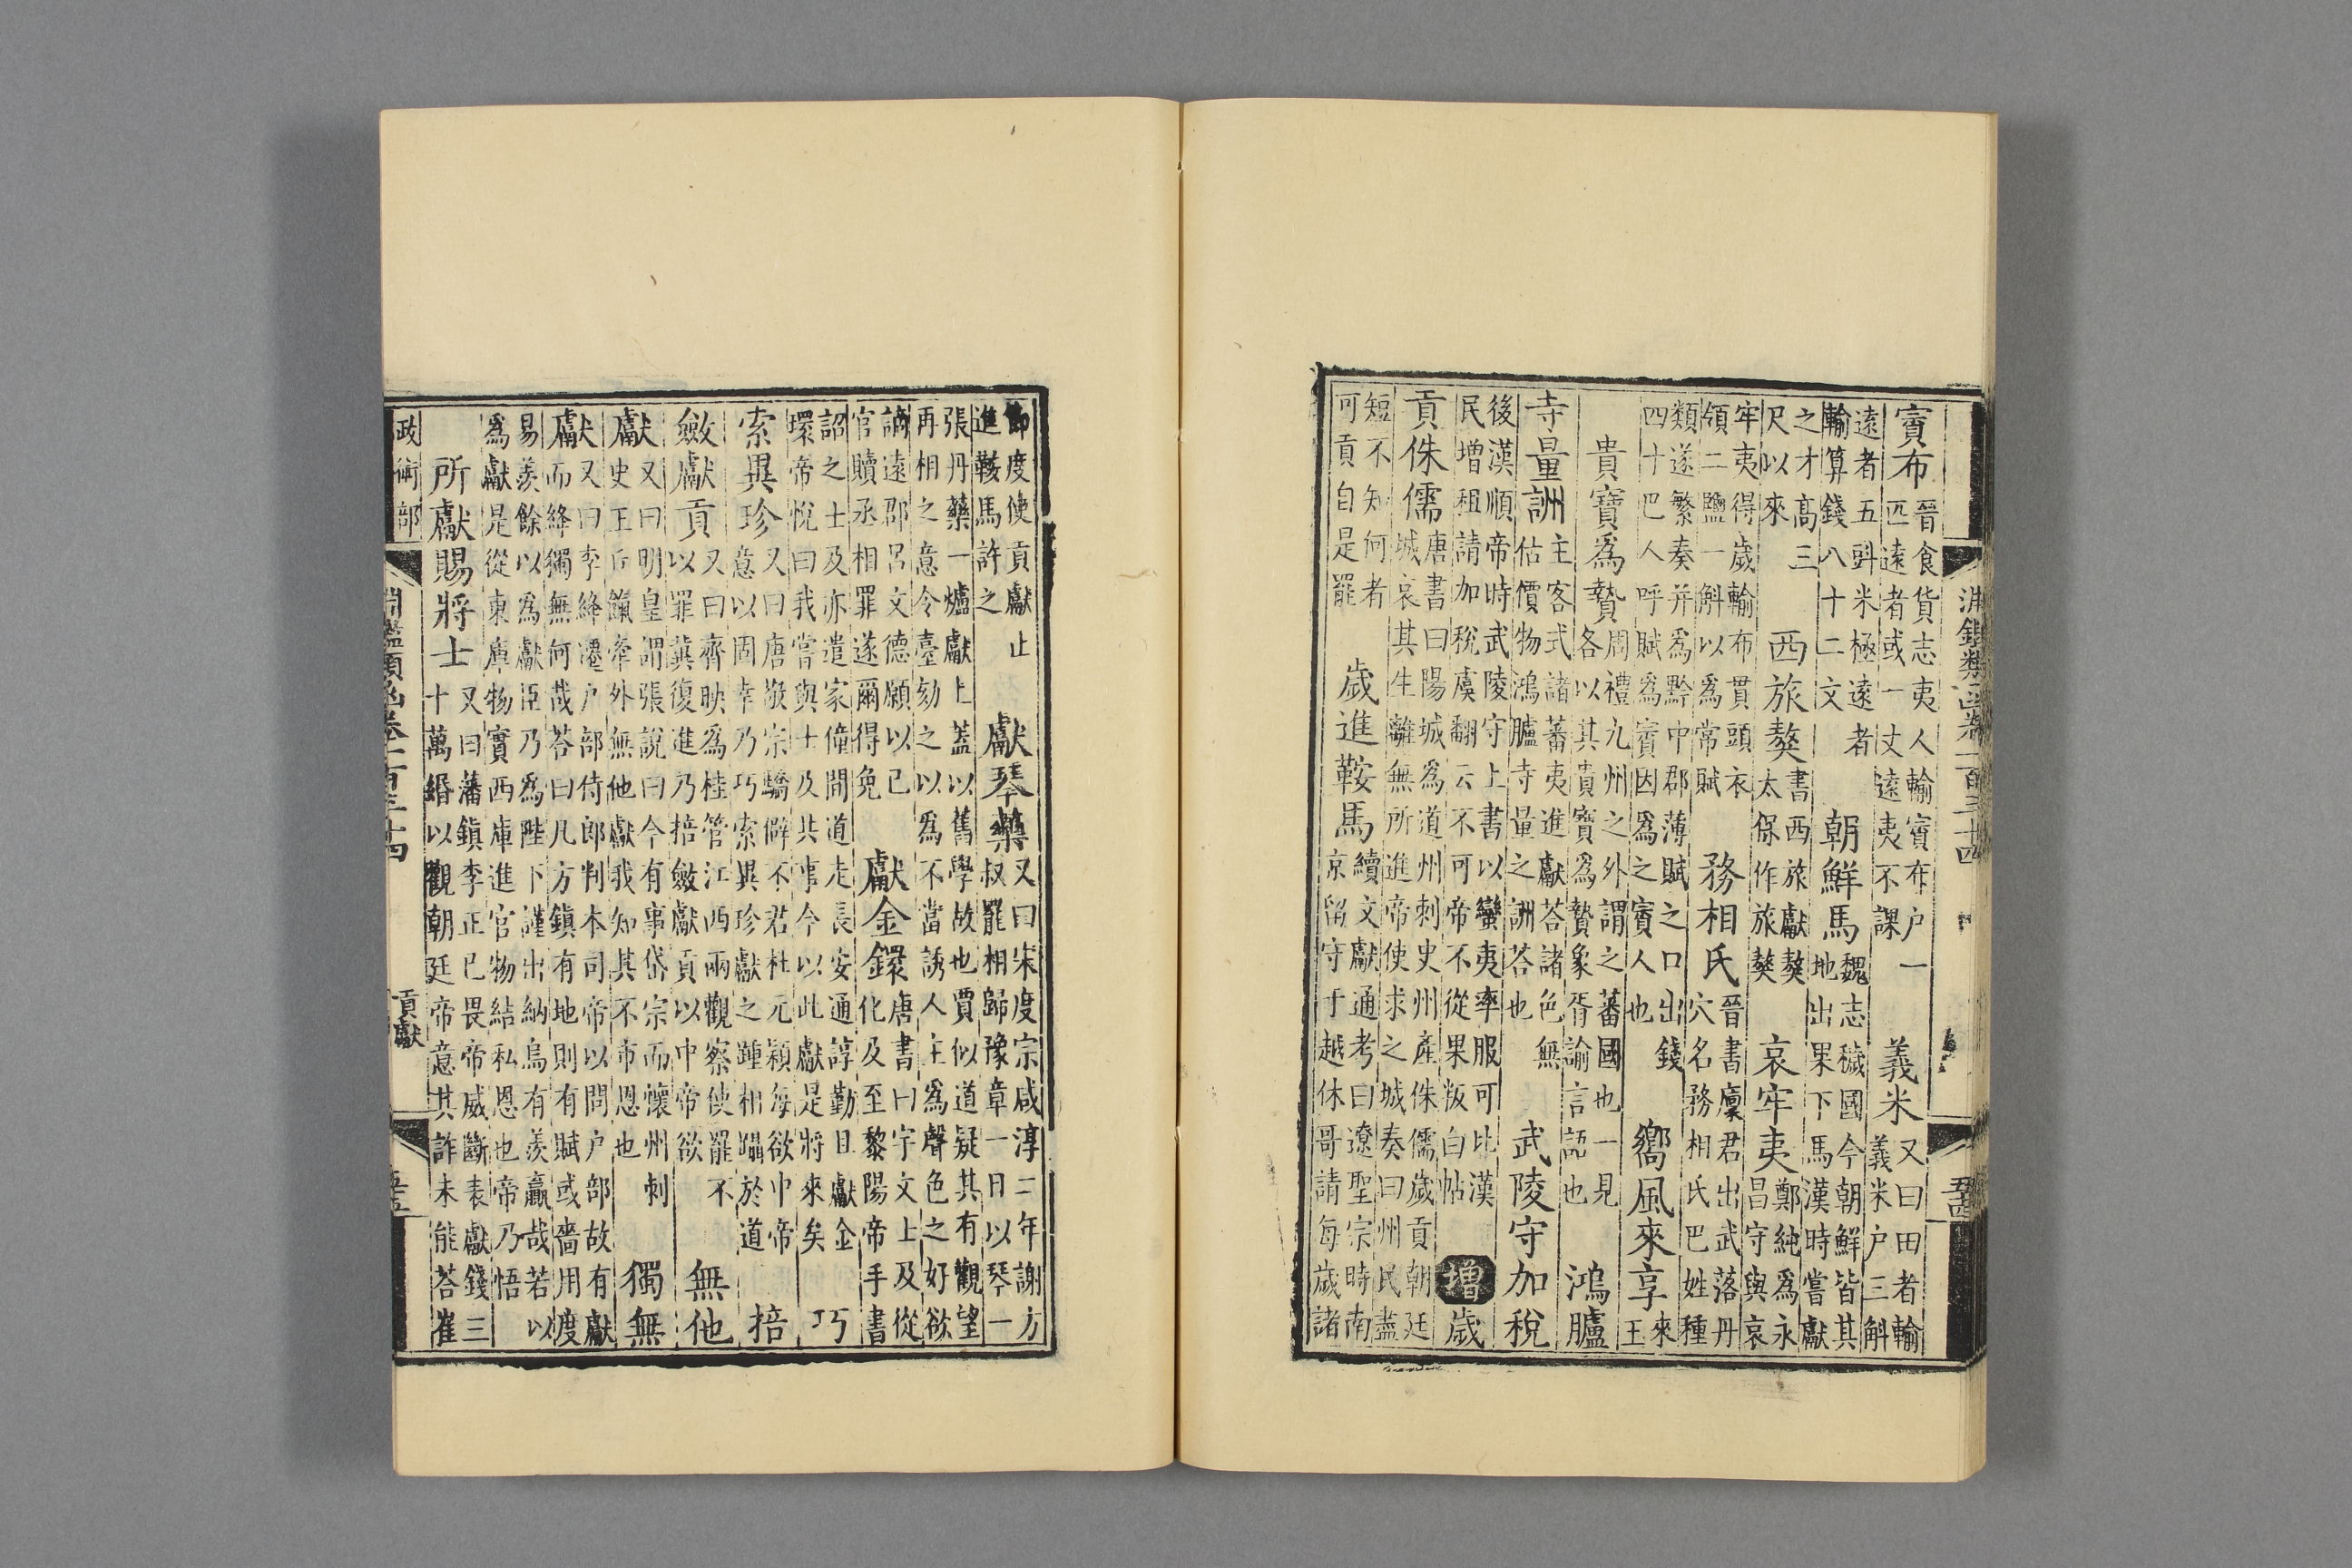 淵鑑類函卷一百三十四 五十四
賓布
晉食貨志夷人輸賓布户一
匹遠者或一丈遠夷不課
義米
又曰田者輸
義米户三斛
遠者五㪷米極遠者
輸算錢八十二文
朝鮮馬
魏志穢國今朝鮮皆其
地出果下馬漢時嘗獻
之才高三
尺以來
西旅獒
書西旅獻獒
太保作旅獒
哀牢夷
鄭純爲永
昌守與哀
牢夷得歲輸布貫頭衣
領二鹽一斛以爲常賦
務相氏
晉書廩君出武落丹
穴名務相氏巴姓種
類遂繁秦并爲黔中郡薄賦之口出錢
四十巴人呼賦爲賨因爲之賨人也
嚮風來享
來
王
貴寶爲贄
周禮九州之外謂之蕃國也一見
各以其貴寶爲贄象胥諭言語也
鴻臚
寺量詶
主客式諸蕃夷進獻荅諸色無
估價物鴻臚寺量之詶荅也
武陵守加稅
後漢順帝時武陵守上書以蠻夷率服可比漢
民增租請加稅虞翻云不可帝不從果叛白帖
增
歲
貢侏儒
唐書曰陽城爲道州刺史州產侏儒歲貢朝廷
城哀其生離無所進帝使求之城奏曰州民盡
短不知何者
可貢自是罷
歲進鞍馬
續文獻通考曰遼聖宗時南
京留守于越休哥請每歲諸
節度使貢獻止
進鞍馬許之
獻琴藥
又曰宋度宗咸淳二年謝方
叔罷相歸豫章一日以琴一
張丹藥一爐獻上葢以舊學故也賈似道疑其有觀望
再相之意令臺劾之以爲不當誘人主爲聲色之好欲
謫遠郡呂文德願以已
官贖丞相罪遂爾得免
獻金鐶
唐書曰宇文士及從
化及至黎陽帝手書
詔之士及亦遣家僮間道走長安通諄勤且獻金
環帝悅曰我嘗與士及共事今以此獻是將來矣
巧
索異珍
又曰唐敬宗驕僻不君杜元穎海欲中帝
意以固幸乃巧索異珍獻之踵相躡於道
掊
斂獻貢
又曰齊映爲桂管江西兩觀察使罷不
以罪冀復進乃掊斂獻貢以中帝欲
無他
獻
又曰明皇謂張說曰今有事岱宗而懷州刺
史王丘餼牽外無他獻我知其不市恩也
獨無
獻
又曰李絳遷户部侍郎判本司帝以問户部故有獻
而絳獨無何哉荅曰凡方鎮有地則有賦或嗇用度
易羨餘以爲獻臣乃爲陛下謹出納烏有羨贏哉若以
爲獻是從東庫物實西庫進官物結私恩也帝乃悟
所獻賜將士
又曰藩鎮李正已畏帝威斷表獻錢三
十萬緡以觀朝廷帝意其詐未能荅崔
政術部 淵鑑類函卷一百三十四 貢獻 五十五